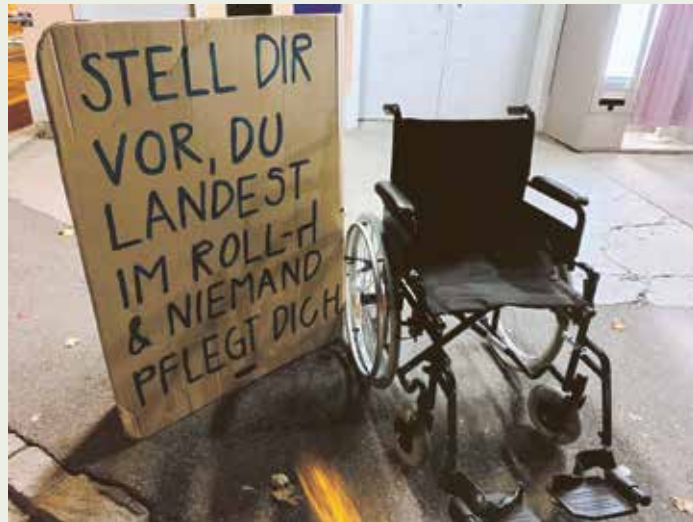 STELL DIR
VOR, DU
LANDEST
IM ROLL-H
& NIEMAND
PFLEGT DICH